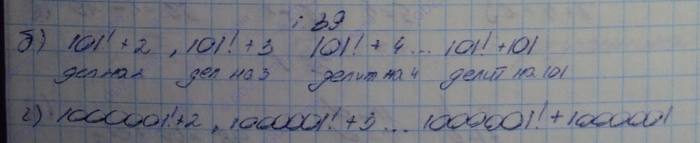 : 39
б) 101! + 2 , 101! + 3 101! + 4 ... 101! + 101
дел на 2 дел на 3 делит на 4 делит на 101
г) 1000001! + 2 , 1000001! + 3 ... 1000001! + 1000001